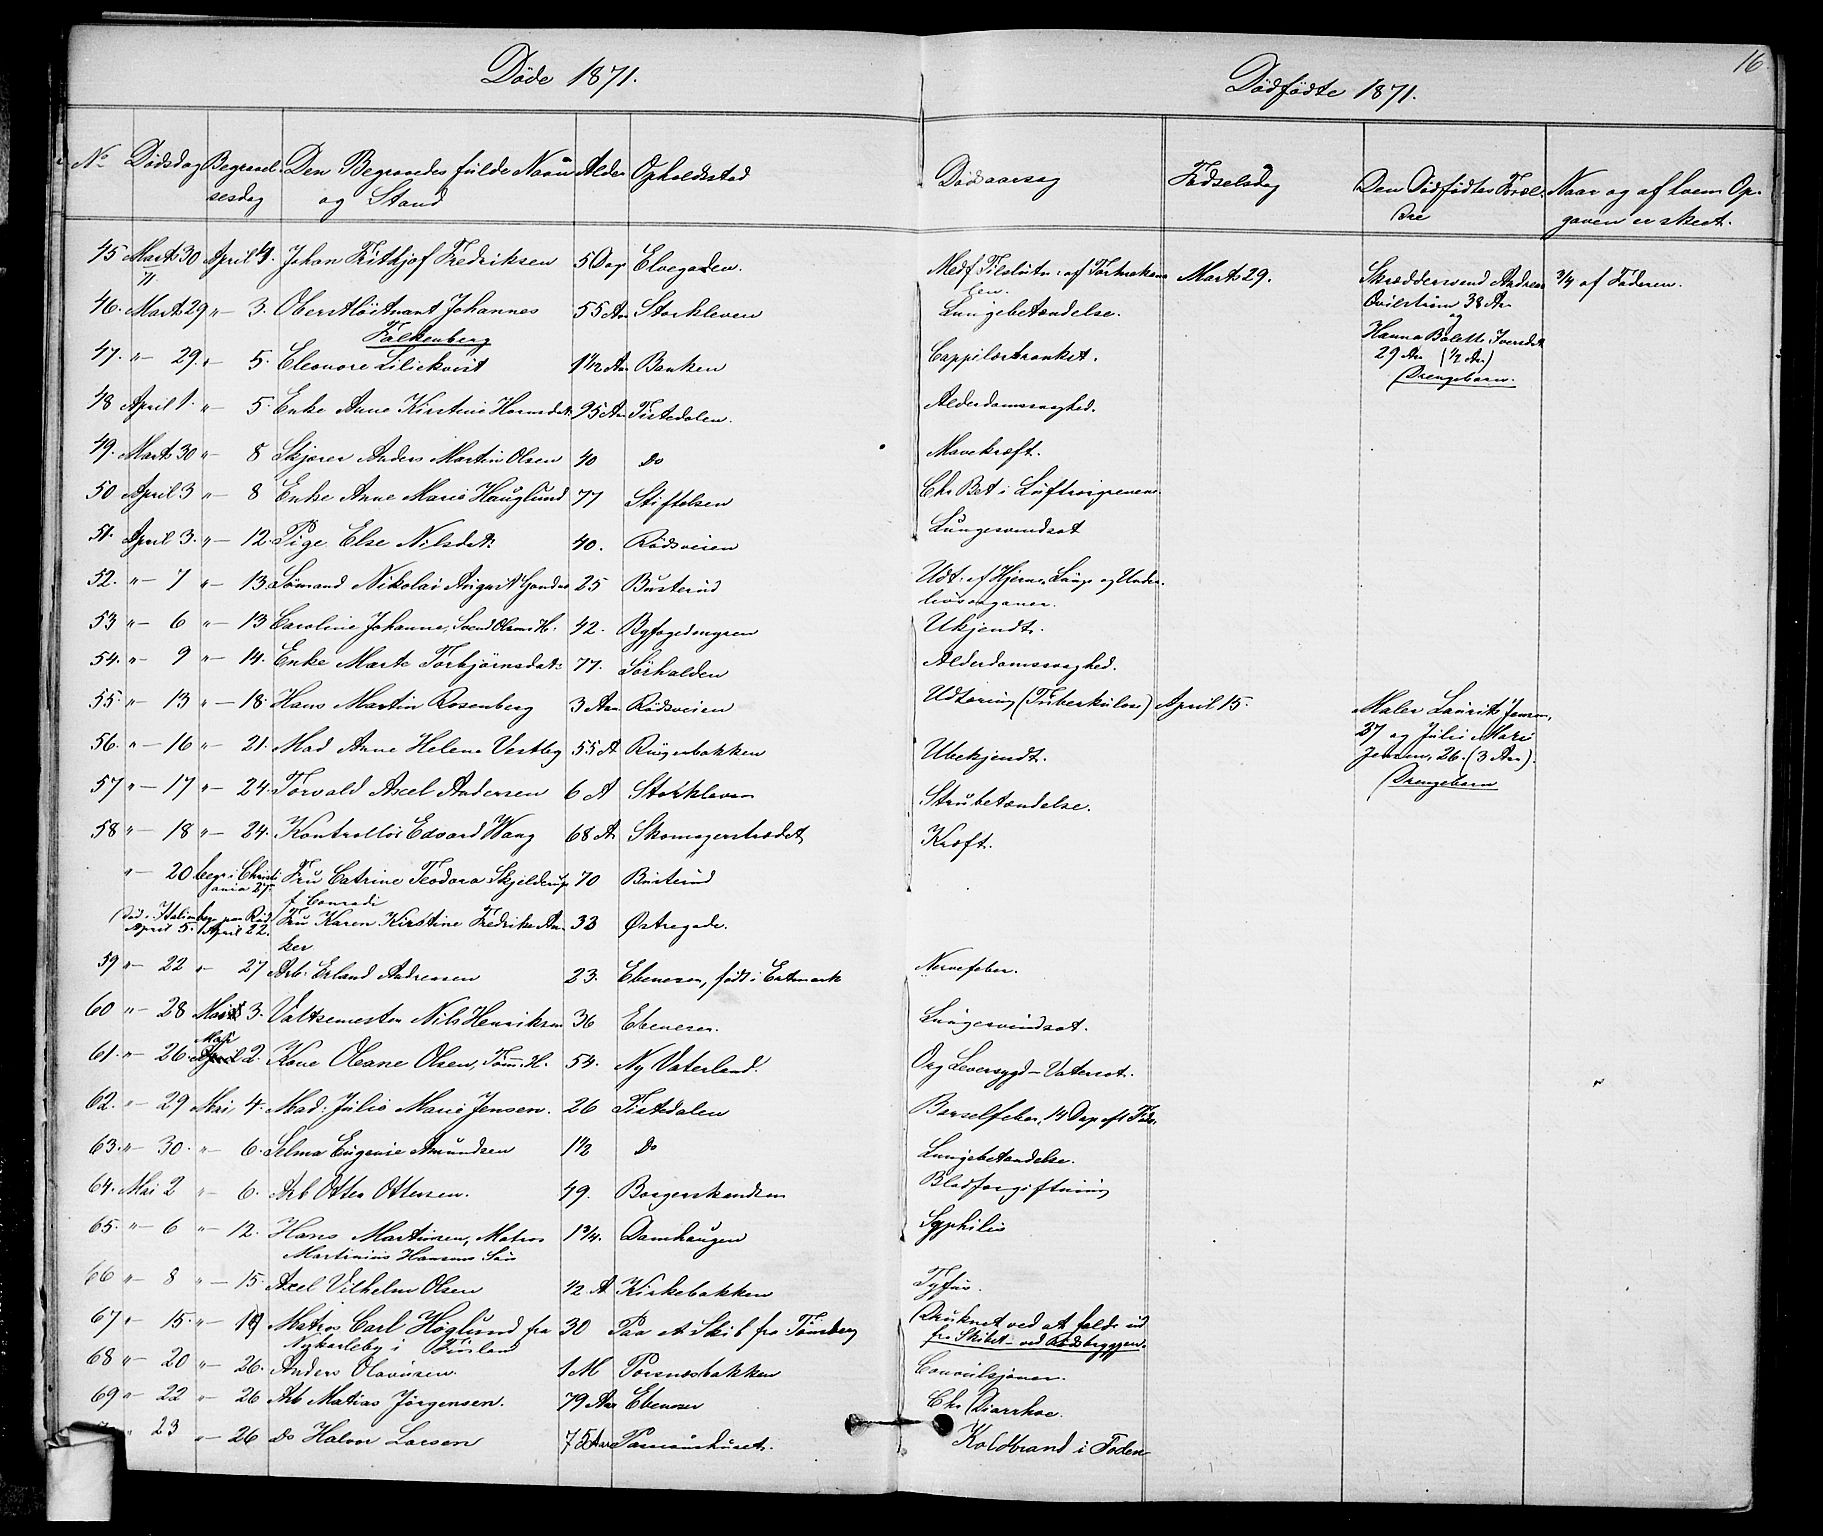 16
Døde 1871.
Dødfødte 1871.
No Dødsdag Begravelsesdag Den Begravedes fulde Navn og Stand Alder Opholdsstad Dødsaarsag Fødselsdag Den Dødfødtes Foreldre Naar og af hvem Opgaven er skeet.
45 Marts 30 April 4. Johan Frithjof Fredriksen 5 Dage Elvegaden. Medf. Tilslutn. af Tarmekanalen.
46. Marts 29 " 3. Oberstløitnant Johannes Falkenberg 55 Aar Storkleven Lungebetændelse.
47. " 29. " 5. Eleonore Liliekvist 1 1/2 Aar Banken Cappilærbronket.
48 April 1. " 5. Enke Anne Kirstine Hansdat: 95 Aar Tistedalen. Alderdomssvaghed.
49. Marts 30 " 8 Skjærer Anders Martin Olsen 40 Do Mavekræft.
50 April 3 " 8 Enke Anne Marie Hauglund 77 Stiftelsen Chr Bet i Luftveiene
51. April 3. " 12. Pige Else Nilsdat: 40. Rødsveien Lungesvindsot
52. " 7 " 13 Sømand Nikolai August 25 Busterud Udt. af Hjerne, Lunge og Underlivsorganer.
53 " 6 " 13 Caroline Johanne, Svend Olsens H. 42. Byfogedmyren Ukjendt.
54. " 9 " 14. Enke Marte Torbjørnsdat: 77. Sørhalden Alderdomssvaghed.
55. " 13 " 18. Hans Martin Rosenberg 3 Aar. Rødsveien Udtæring (Tuberkulose)
56. " 16 " 21. Mad Anne Helene Vestby 55 A Rugenbakken Ubekjendt.
57 " 17 " 24. Torvald Axel Andersen 6 A Storkleven Strubetændelse.
58 " 18 " 24. Kontrollør Edvard Wang 68 A. Skomagerstrædet Kræft.
" 20 begr. i Christiania 27. Fru Catrine Teodora Skjelderup f. Conradi 70 Busterud
Død i Italien April 5. begr. paa Rød April 22. Fru Karen Kirstine Fredrike Anker 33 Østregade.
59 " 22 " 27 Arb. Erland Andressen 23. Ebeneser, født i Nervefeber.
60 " 28 Mai 3. Valtsemester Nils Henriksen 36 Ebeneser. Lungesvindsot.
61. " 26. Mai 2. Kone Oleane Olsen, Tømm. H. 54. Ny Vaterland. Org Leversygd – Vatersot.
62. " 29 Mai 4. Mad. Julie Marie Jensen. 26 Tistedalen Barselfeber, 14 Dage eft Føds.
63. " 30. " 6. Selma Eugenie Amundsen 1 1/2 Do Lungebetændelse.
64. Mai 2 " 6. Arb Otter Ottersen. 49. Borgerskandsen Blodforgiftning
65. " 6 " 12. Hans Martinsen, Matros Martinius Hansens Søn 1 3/4. Damhaugen Syphilis
66 " 8 " 15. Axel Vilhelm Olsen 1/2 A Kirkebakken Tyfus.
67 " 15. " 19 Matros Carl Høglund fra Nykarleby i Finland 30 Paa et Skib fra Tønsberg Druknet ved at falde ud fra Skibet – ved Rødsbryggen.
68 " 20 " 26. Anders Olausen. 1 M Porsnesbakken Convulsjoner.
69 " 22 " 26 Arb Matias Jørgensen. 79 Aar Ebeneser Chr Diarrhoe.
" 23 " 26 Do Halvor Larsen 75 Aar Koldbrand i Foden
Marts 29. Skrædersvend Andreas Qvilstrøm 38 Ar og Hanna Bolette Iversdat 29 Ar (1/2 Ar) Drengebarn. 3/4 af Faderen.
April 15. Maler Laurits Jensen, 27 og Julie Marie Jensen, 26. (3 Aar). Drengebarn